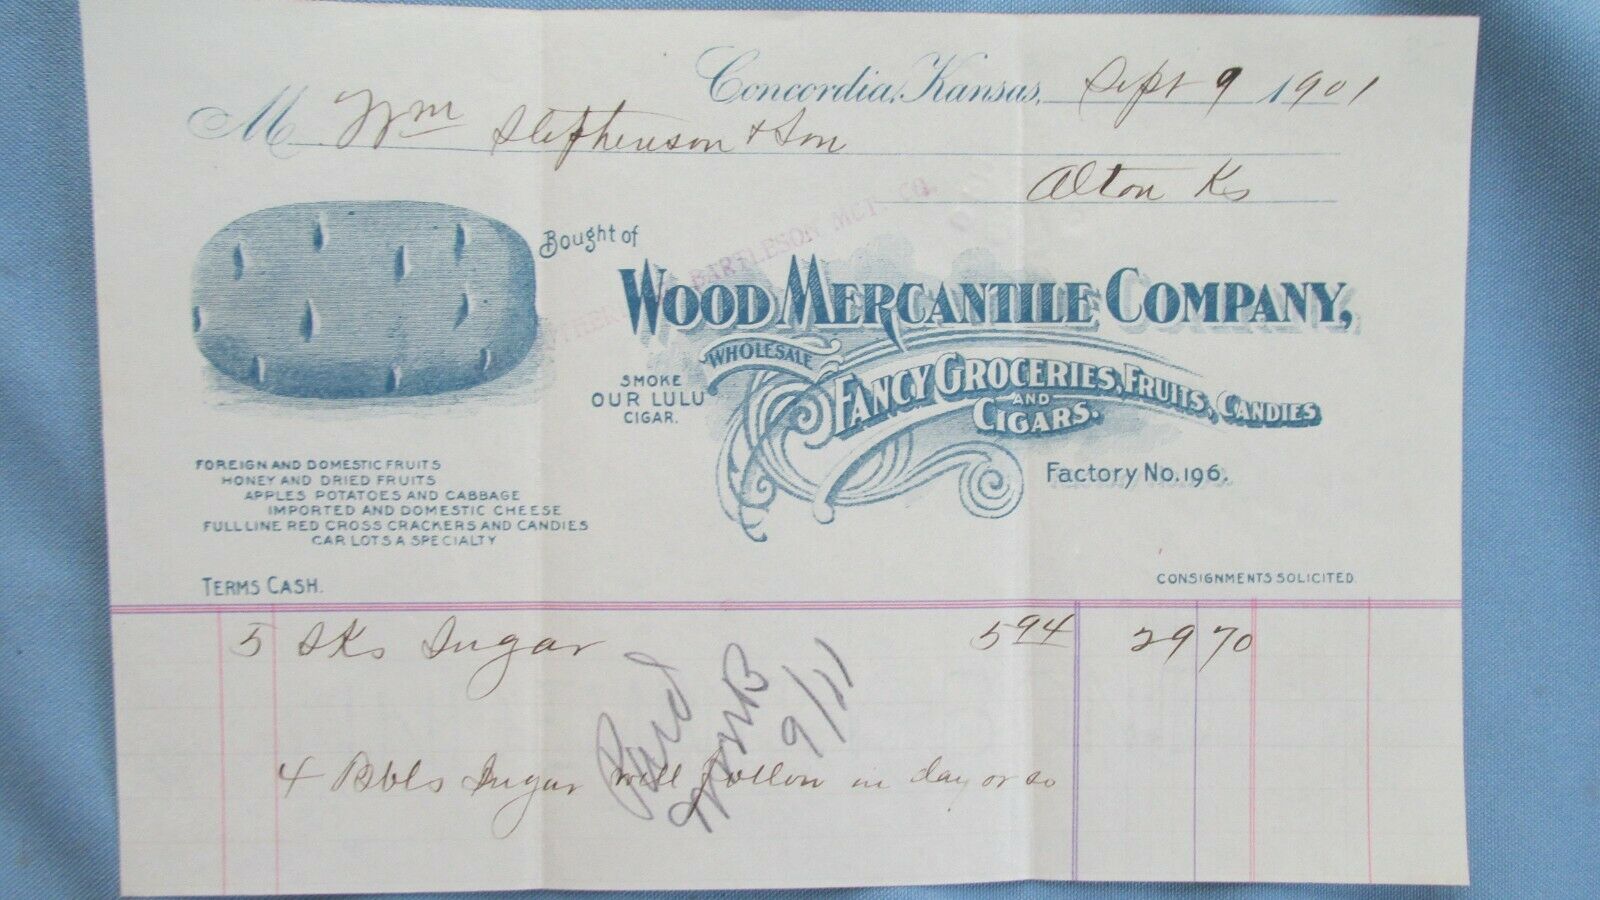 Concordia, Kansas, Sept 9 1901
M Wm Stephenson & Son
Alton Ks
Bought of
BARTLESON MCT. CO.
WOOD MERCANTILE COMPANY,
WHOLESALE
FANCY GROCERIES, FRUITS, CANDIES
AND
CIGARS.
SMOKE
OUR LULU
CIGAR.
Factory No. 196.
FOREIGN AND DOMESTIC FRUITS
HONEY AND DRIED FRUITS
APPLES POTATOES AND CABBAGE
IMPORTED AND DOMESTIC CHEESE
FULL LINE RED CROSS CRACKERS AND CANDIES
CAR LOTS A SPECIALTY
TERMS CASH.
CONSIGNMENTS SOLICITED.
5 Sks Sugar 5 94 29 70
Paid
9/11
4 Bbls Sugar will follow in day or so